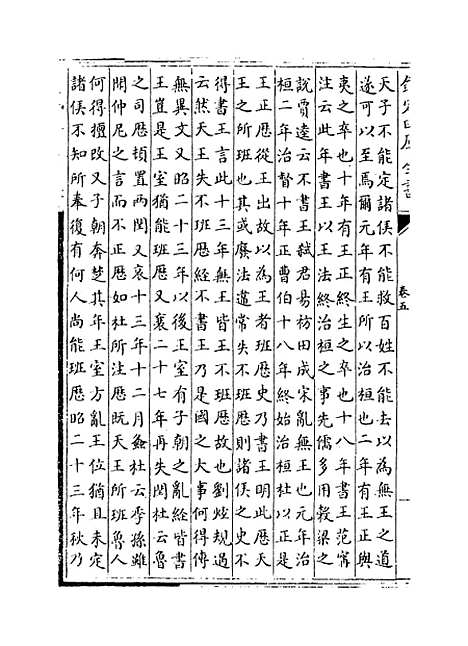 欽定四庫全書
卷五
天子不能定諸侯不能救百姓不能去以為無王之道
遂可以至焉爾元年有王所以治桓也二年有王正與
夷之卒也十年有王正終生之卒也十八年書王范甯
注云此年書王以王法終治桓之事先儒多用穀梁之
說賈逵云不書王弒君易祊田成宋亂無王也元年治
桓二年治督十年正曹伯十八年終始治桓杜以正是
王正歴從王出故以為王者班歴史乃書王明此歴天
王之所班也其或廢法違常失不班歴則諸侯之史不
得書王言此十三年無王皆王不班歴故也劉炫規過
云然天王失不班歴經不書王乃是國之大事何得傳
無異文又昭二十三年以後王室有子朝之亂經皆書
王豈是王室猶能班歴又襄二十七年再失閏杜云魯
之司歴頓置兩閏又哀十三年十二月螽杜云季孫雖
聞仲尼之言而不正歴如杜所注歴既天王所班魯人
何得擅改又子朝奔楚其年王室方亂王位猶且未定
諸侯不知所奉復有何人尚能班歴昭二十三年秋乃